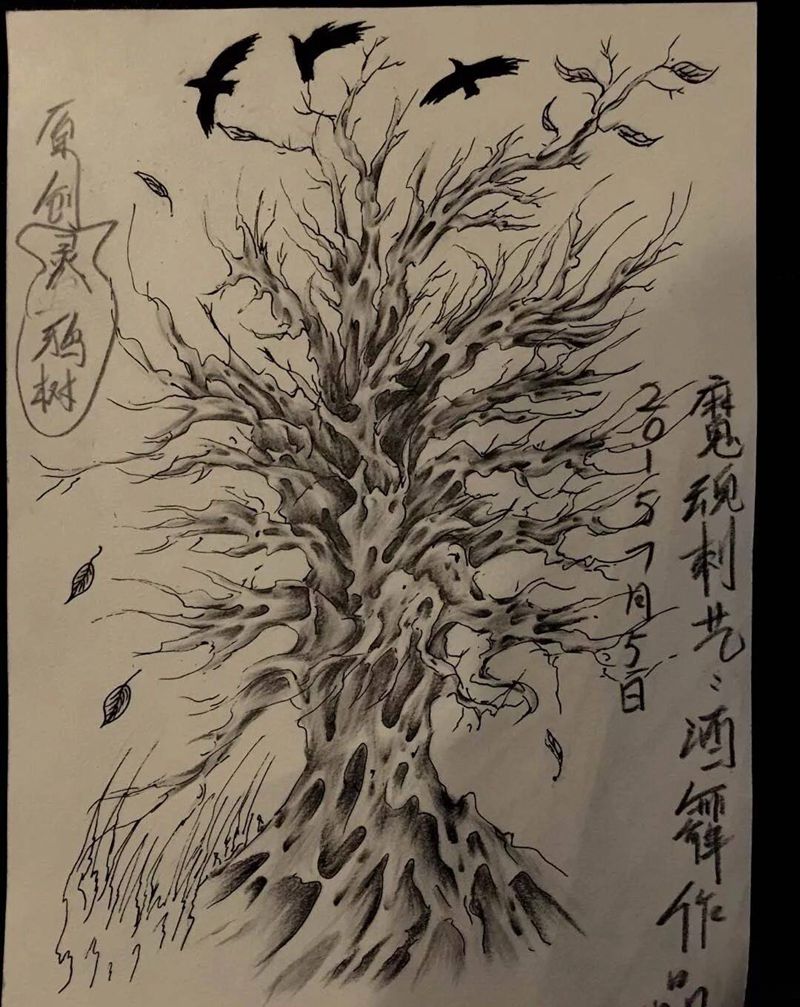 原创灵鸦树
2015年7月5日
魔魂刺艺:酒罪作品